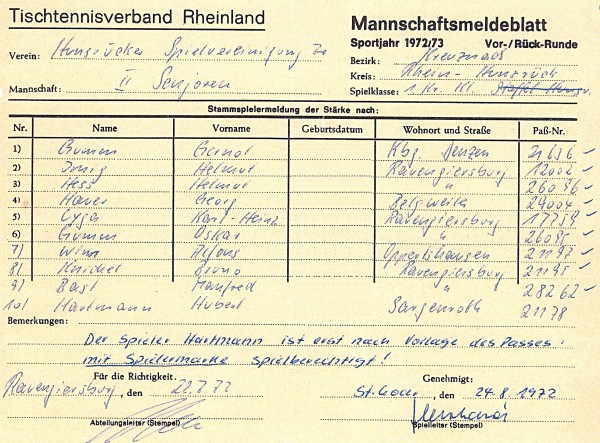 Tischtennisverband Rheinland
Mannschaftsmeldeblatt
Sportjahr 1972/73 Vor-/Rück-Runde
Verein: Hunsrücker Spielvereinigung
Bezirk: Kreuznach
Kreis: Rhein-Hunsrück
Mannschaft: II Senioren
Spielklasse: 1. Kr. Kl. Staffel
Stammspielermeldung der Stärke nach:
Nr. Name Vorname Geburtsdatum Wohnort und Straße Paß-Nr.
1) Gumm Gernot Kbg. Denzen 21636
2) Helmut Ravengiersburg 12002
3) Hess Helmut " 26096
4) Hauer Georg Belgweiler 29004
5) Cyga Karl-Heinz Ravengiersburg 17759
6) Gumm Oskar " 26095
7) Wirm Alfons Oppertshausen 21197
8) Knichel Bruno Ravengiersburg 21195
9) Bast Manfred " 28262
10) Hartmann Hubert Sargenroth 21178
Bemerkungen:
Der Spieler Hartmann ist erst nach Vorlage des Passes
mit Spielermarke Spielberechtigt!
Für die Richtigkeit. Genehmigt:
Ravengiersburg, den 22.7.72 St. Goar, den 24.8.1972
Abteilungsleiter (Stempel) Spielleiter (Stempel)